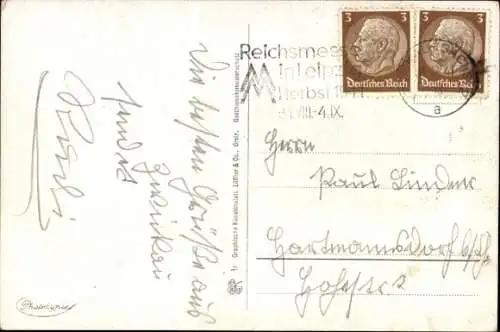 Die besten Grüße aus
Zwickau
sendet
3
3
Deutsches Reich
Deutsches Reich
Reichsmesse
in Leipz
Herbst 19
31.VIII.-4.IX.
a
Herrn
Paul Linder
Hartmannsdorf
Hohestr.
Graphische Kunstanstalt, Löffler & Co., Greiz.